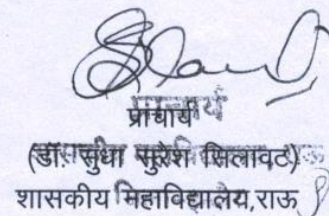 प्राचार्य
(डॉ. सुधा सुरेश सिलावट)
शासकीय महाविद्यालय, राऊ